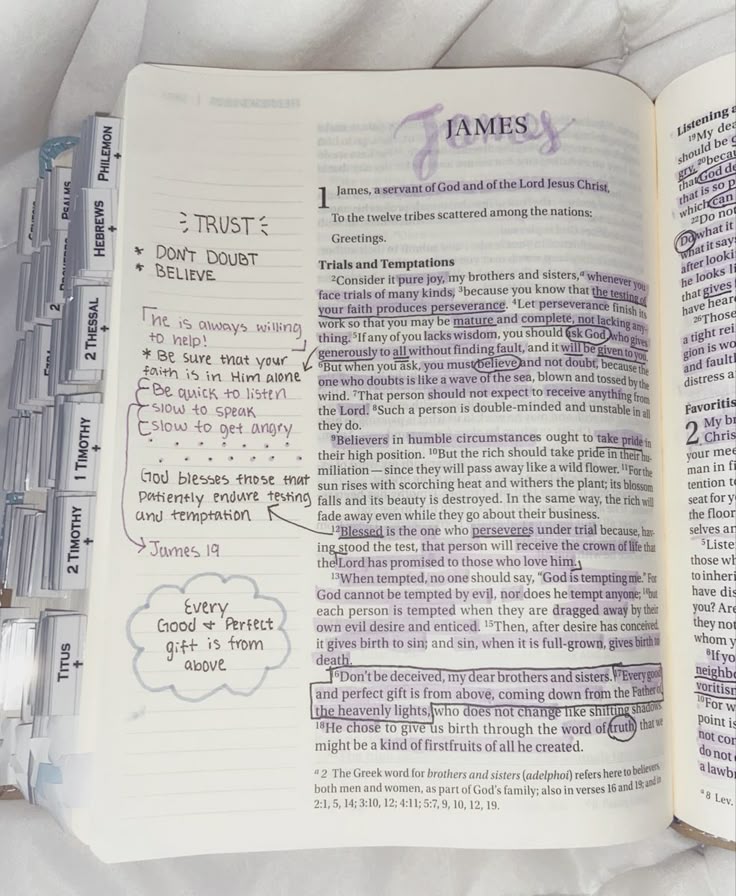 PHILEMON
HEBREWS
PSALMS
2 THESSAL
1 TIMOTHY
2 TIMOTHY
TITUS
TRUST
* DON'T DOUBT
* BELIEVE
he is always willing
to help!
* Be sure that your
faith is in Him alone
Be quick to listen
slow to speak
slow to get angry
God blesses those that
patiently endure testing
and temptation
James 19
Every
Good + Perfect
gift is from
above
James
JAMES
1 James, a servant of God and of the Lord Jesus Christ,
To the twelve tribes scattered among the nations:
Greetings.
Trials and Temptations
2Consider it pure joy, my brothers and sisters,a whenever you
face trials of many kinds, 3because you know that the testing of
your faith produces perseverance. 4Let perseverance finish its
work so that you may be mature and complete, not lacking any-
thing. 5If any of you lacks wisdom, you should ask God, who gives
generously to all without finding fault, and it will be given to you.
6But when you ask, you must believe and not doubt, because the
one who doubts is like a wave of the sea, blown and tossed by the
wind. 7That person should not expect to receive anything from
the Lord. 8Such a person is double-minded and unstable in all
they do.
9Believers in humble circumstances ought to take pride in
their high position. 10But the rich should take pride in their hu-
miliation — since they will pass away like a wild flower. 11For the
sun rises with scorching heat and withers the plant; its blossom
falls and its beauty is destroyed. In the same way, the rich will
fade away even while they go about their business.
12Blessed is the one who perseveres under trial because, hav-
ing stood the test, that person will receive the crown of life that
the Lord has promised to those who love him.
13When tempted, no one should say, "God is tempting me." For
God cannot be tempted by evil, nor does he tempt anyone; 14but
each person is tempted when they are dragged away by their
own evil desire and enticed. 15Then, after desire has conceived,
it gives birth to sin; and sin, when it is full-grown, gives birth to
death.
16Don't be deceived, my dear brothers and sisters. 17Every good
and perfect gift is from above, coming down from the Father of
the heavenly lights, who does not change like shifting shadows.
18He chose to give us birth through the word of truth, that we
might be a kind of firstfruits of all he created.
a 2 The Greek word for brothers and sisters (adelphoi) refers here to believers,
both men and women, as part of God's family; also in verses 16 and 19; and in
2:1, 5, 14; 3:10, 12; 4:11; 5:7, 9, 10, 12, 19.
Listening a
19My dea
should be
gry, 20becau
that God de
that is so p
which can
22Do not
Do what it
what it says
after looki
he looks li
that gives
have heard
26Those
a tight rei
gion is wo
and fault
distress a
Favoritis
2 My br
Chris
your mee
man in fi
tention t
seat for y
the floor
selves an
5Liste
those wh
to inheri
have dis
you? Are
they not
whom y
8If yo
neighbo
voritism
10For w
point is
not con
do not
a lawb
a 8 Lev.